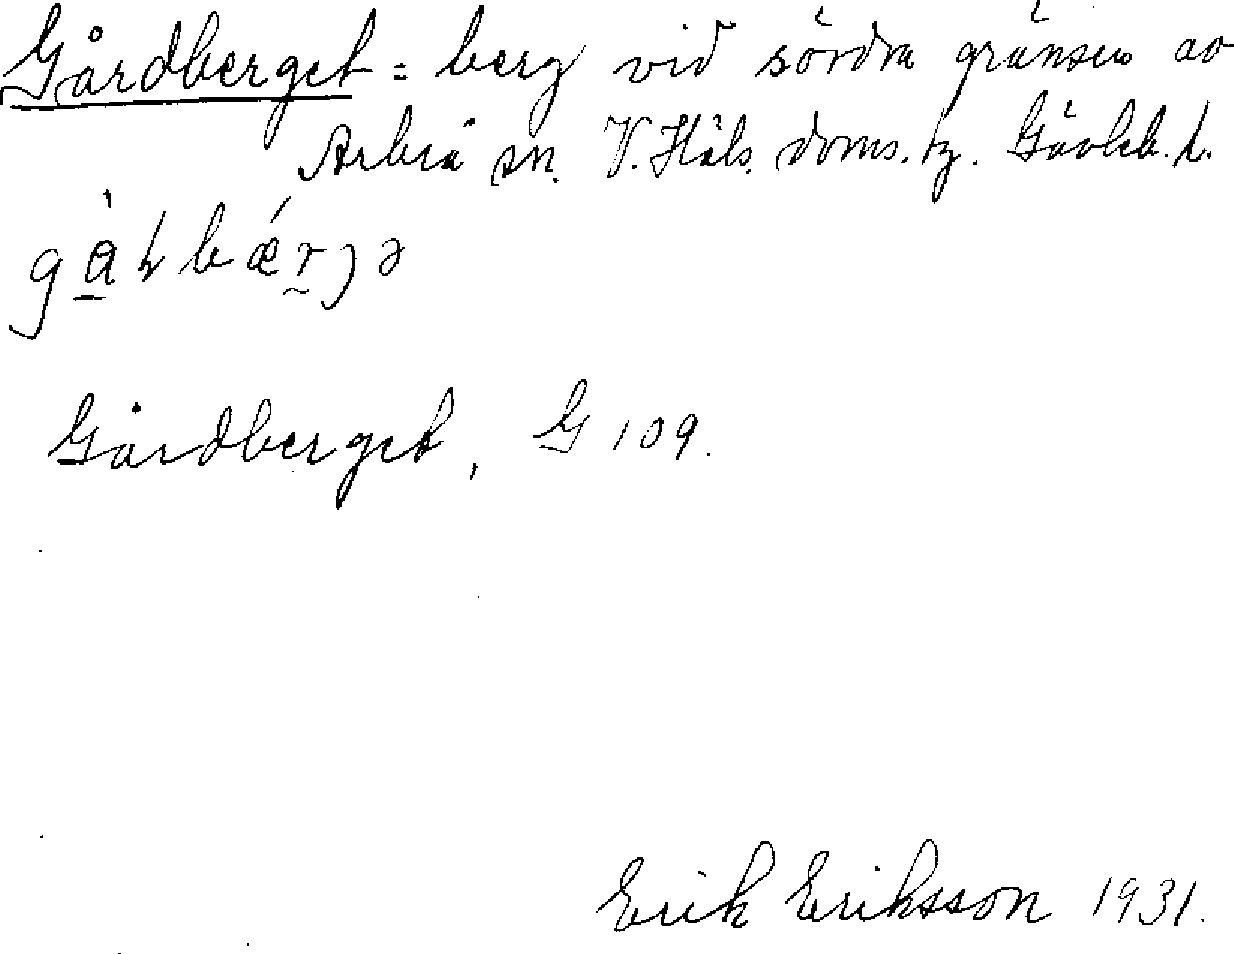 Gårdberget = berg vid södra gränsen av
Arbrå sn. V. Häls. doms. tg. Gävleb. l.
Gårdberget, G 109.
Erik Eriksson 1931.